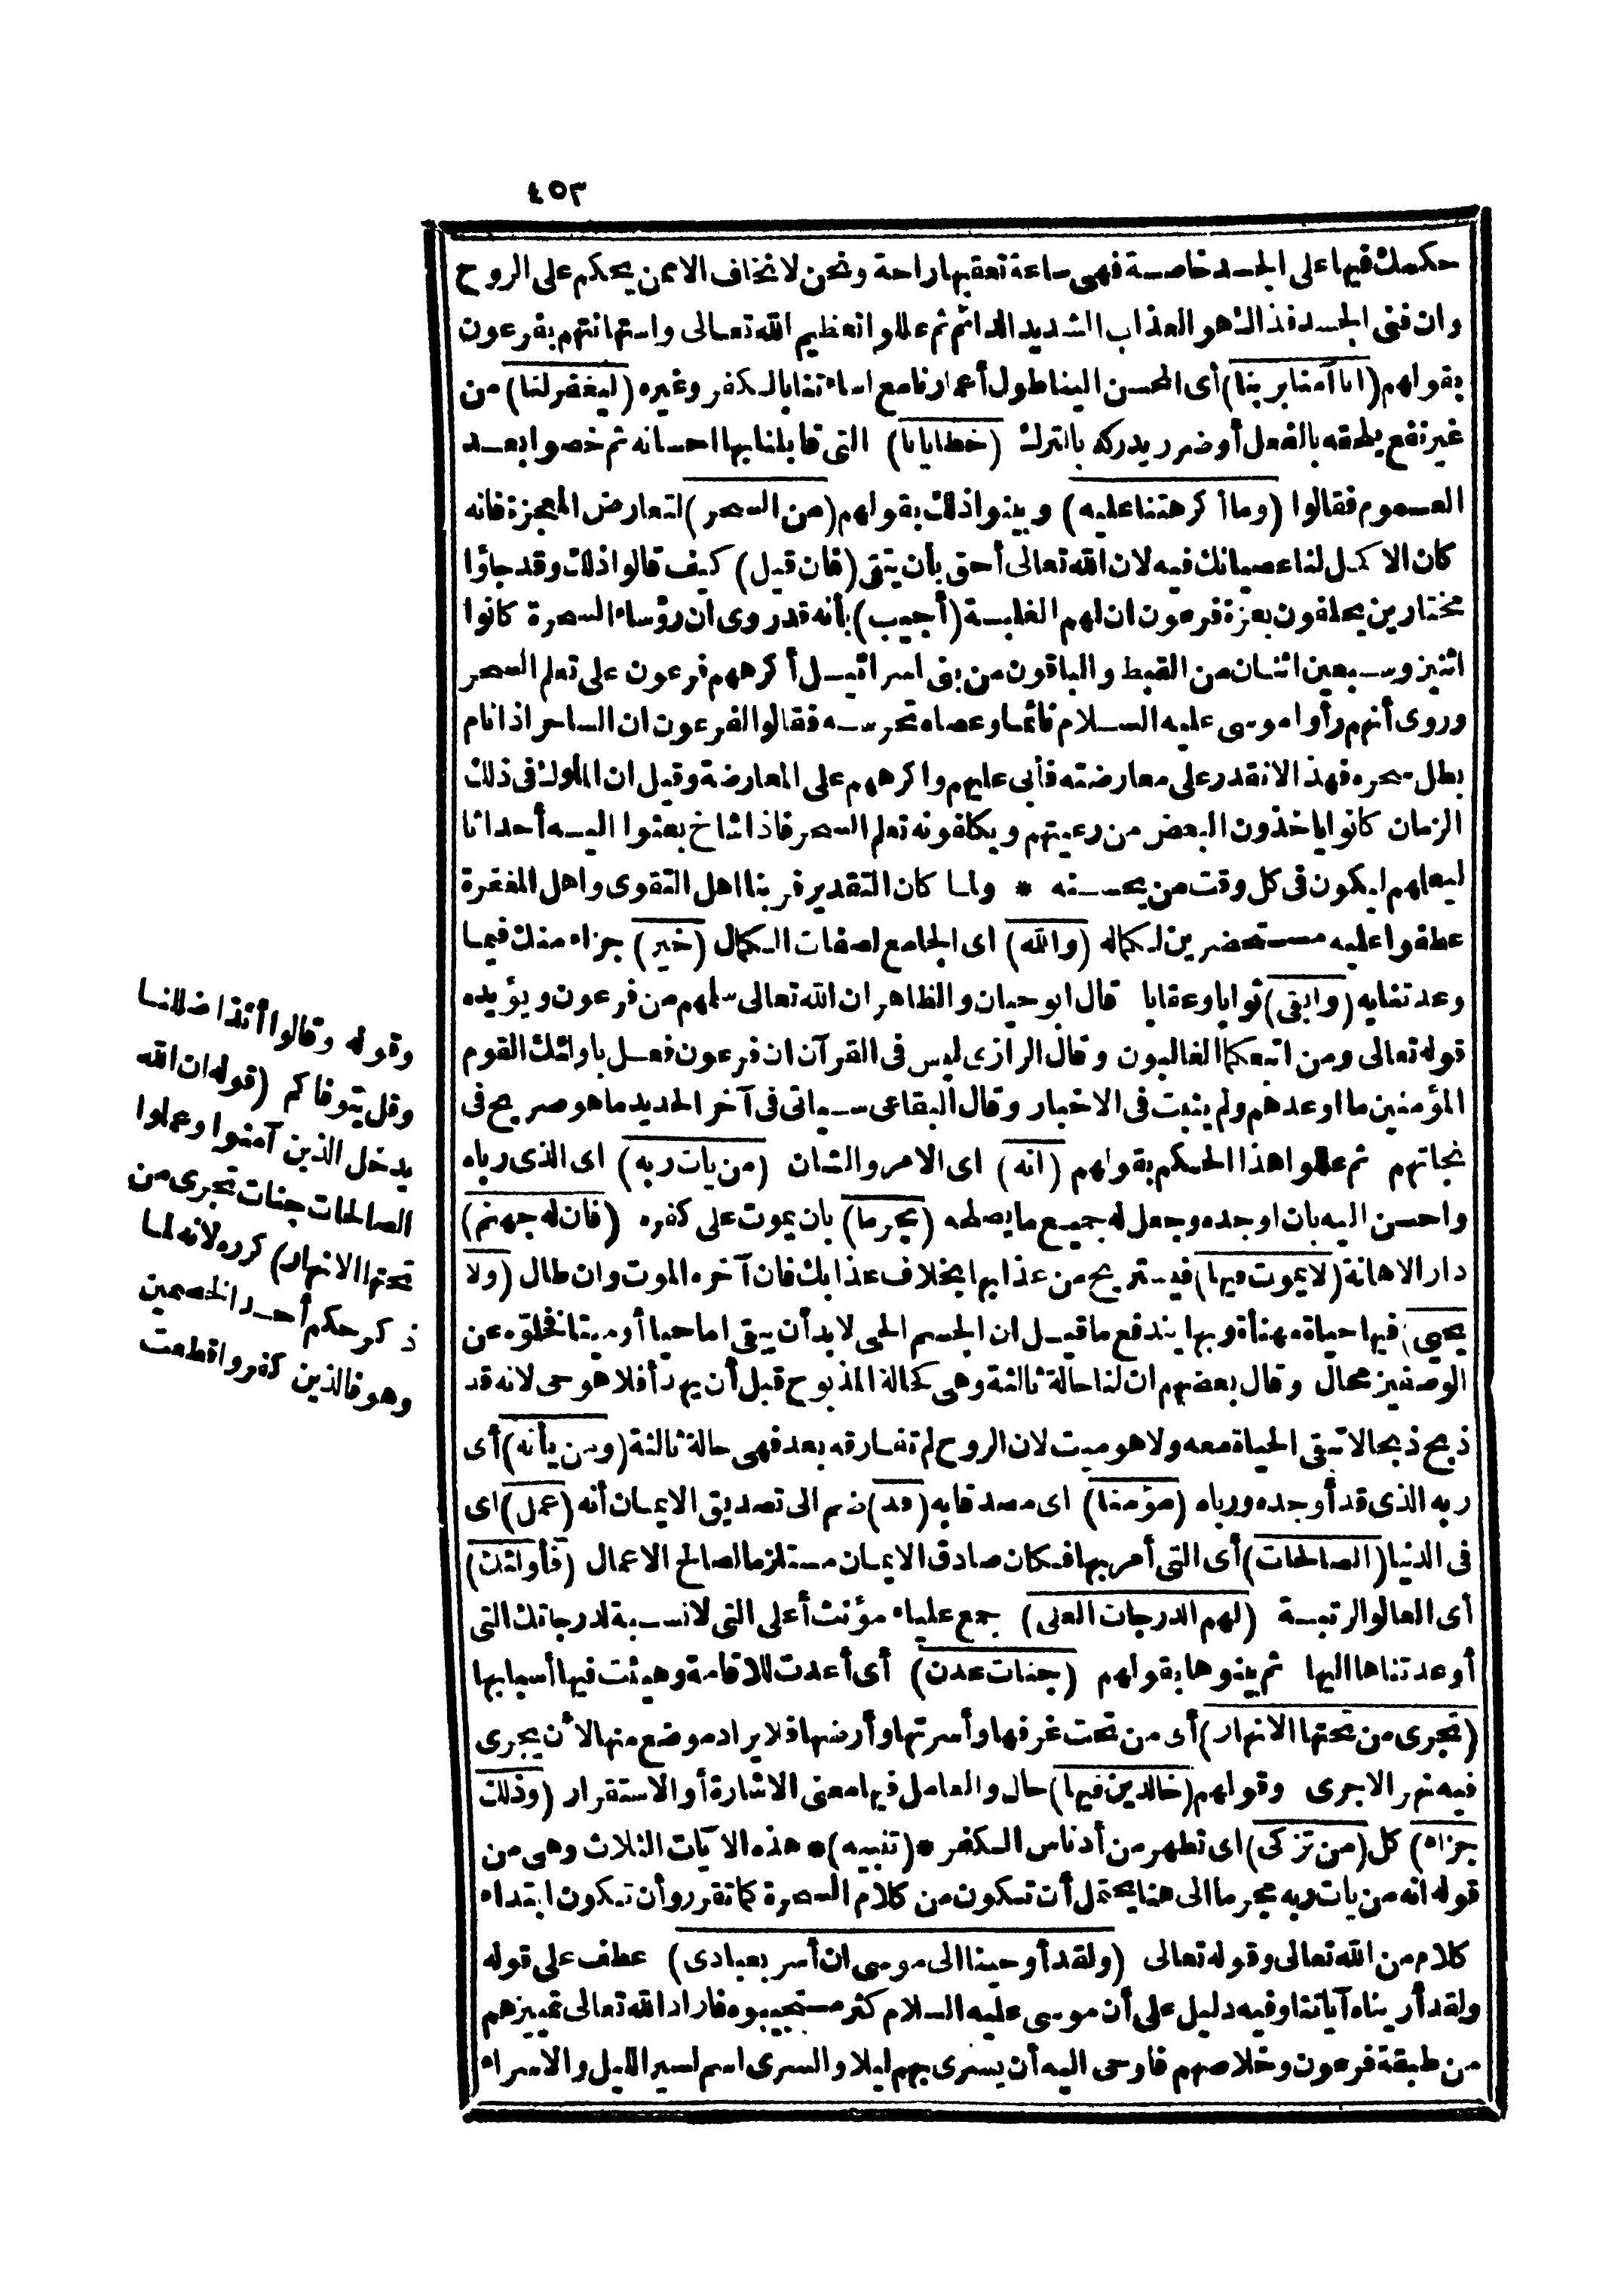 ٤٥٣
حكمك فيها على الجسد خاصة فهى ساعة تعقبها راحة ونحن لا نخاف الا ممن يحكم على الروح
وان فنى الجسد فذالك هو العذاب الشديد الدائم ثم عللوا تعظيم الله تعالى واستهانتهم بفرعون
بقولهم (انا آمنا بربنا) أى المحسن الينا طول أعمارنا مع اساءتنا بالكفر وغيره (ليغفر لنا) من
غير نفع يلحقه بالفعل أو ضرر يدركه بالترك (خطايانا) التى قابلنا بها احسانه ثم خصوا بعد
العموم فقالوا (وما أكرهتنا عليه) وبينوا ذلك بقولهم (من السحر) لتعارض المعجزة فانه
كان الاكمل لنا عصيانك فيه لان الله تعالى أحق بأن يتقى (فان قيل) كيف قالوا ذلك وقد جاؤا
مختارين يحلفون بعزة فرعون ان لهم الغلبة (أجيب) بأنه قد روى ان رؤساء السحرة كانوا
اثنين وسبعين اثنان من القبط والباقون من بنى اسرائيل أكرههم فرعون على تعلم السحر
وروى أنهم رأوا موسى عليه السلام نائما وعصاه تحرسه فقالوا لفرعون ان الساحر اذا نام
بطل سحره فهذا لا نقدر على معارضته فأبى عليهم واكرههم على المعارضة وقيل ان الملوك فى ذلك
الزمان كانوا ياخذون البعض من رعيتهم ويكلفونه تعلم السحر فاذا شاخ بعثوا اليه أحداثا
ليعلمهم ليكون فى كل وقت من يحسنه * ولما كان التقدير فربنا اهل التقوى واهل المغفرة
عطفوا عليه مستحضرين لكماله (والله) اى الجامع لصفات الكمال (خير) جزاء منك فيما
وعدتنا به (وابقى) ثوابا وعقابا قال ابو حيان والظاهر ان الله تعالى سلمهم من فرعون ويؤيده
قوله تعالى ومن اتبعكما الغالبون وقال الرازى ليس فى القرآن ان فرعون فعل باولئك القوم
المؤمنين ما اوعدهم ولم يثبت فى الاخبار وقال البقاعى سياتى فى آخر الحديد ما هو صريح فى
نجاتهم ثم عللوا هذا الحكم بقولهم (انه) اى الامر والشان (من يات ربه) اى الذى رباه
واحسن اليه بان اوجده وجعل له جميع ما يصلحه (مجرما) بان يموت على كفره (فان له جهنم)
دار الاهانة (لا يموت فيها) فيستريح من عذابها بخلاف عذابك فان آخره الموت وان طال (ولا
يحيى) فيها حياة مهنأة وبها يندفع ما قيل ان الجسم الحى لا بد أن يبقى اما حيا أو ميتا فخلوه عن
الوصفين محال وقال بعضهم ان لنا حالة ثالثة وهى كحالة المذبوح قبل أن يهدأ فلا هو حى لانه قد
ذبح ذبحا لا تبقى الحياة معه ولا هو ميت لان الروح لم تفارقه بعد فهى حالة ثالثة (ومن يأته) أى
ربه الذى قد أوجده ورباه (مؤمنا) اى مصدقا به (قد) ضم الى تصديق الايمان أنه (عمل) اى
فى الدنيا (الصالحات) أى التى أمر بها فكان صادق الايمان مستلزما لصالح الاعمال (فأولئك)
أى العالو الرتبة (لهم الدرجات العلى) جمع علياء مؤنث أعلى التى لا نسبة لدرجاتك التى
أوعدتنا ها اليها ثم بينوها بقولهم (جنات عدن) أى أعدت للاقامة وهيئت فيها أسبابها
(تجرى من تحتها الانهار) أى من تحت غرفها وأسرتها وأرضها فلا يراد موضع منها لأن يجرى
فيه نهر الا جرى وقولهم (خالدين فيها) حال والعامل فيها معنى الاشارة أو الاستقرار (وذلك
جزاء) كل (من تزكى) اى تطهر من أدناس الكفر *(تنبيه)* هذه الآيات الثلاث وهى من
قوله انه من يات ربه مجرما الى هنا يحتمل أن تكون من كلام السحرة كما تقرر وأن تكون ابتداء
كلام من الله تعالى وقوله تعالى (ولقد أوحينا الى موسى ان أسر بعبادى) عطف على قوله
ولقد أريناه آياتنا وفيه دليل على أن موسى عليه السلام كثر مستجيبوه فاراد الله تعالى تمييزهم
من طبقة فرعون وخلاصهم فاوحى اليه أن يسرى بهم ليلا والسرى اسم لسير الليل والاسراء
وقوله وقالوا أئذا ضللنا
وقل يتوفاكم (قوله ان الله
يدخل الذين آمنوا وعملوا
الصالحات جنات تجرى من
تحتها الانهار) كرره لانه لما
ذكر حكم أحد الخصمين
وهو فالذين كفروا قطعت